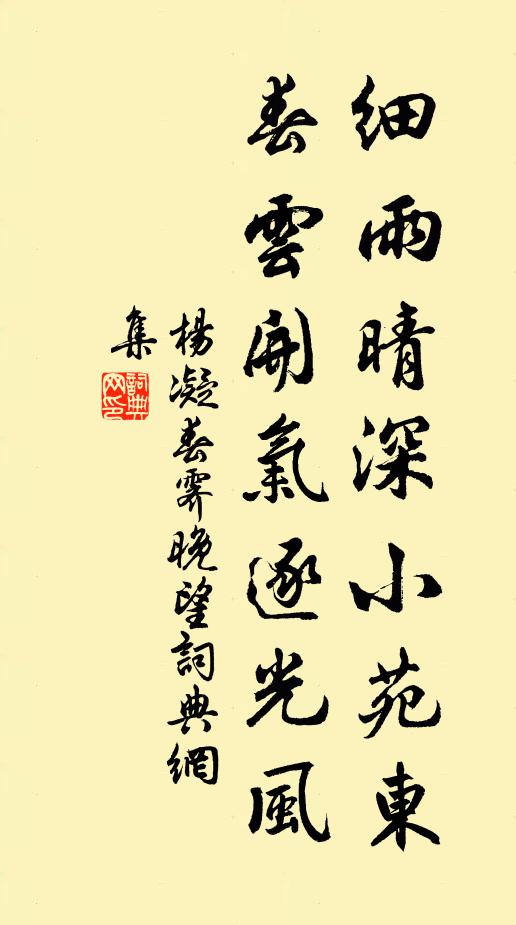 细雨晴深小苑東
春雲開氣逐光風
楊凝春霽晚望詞典網
集
詞典
网印